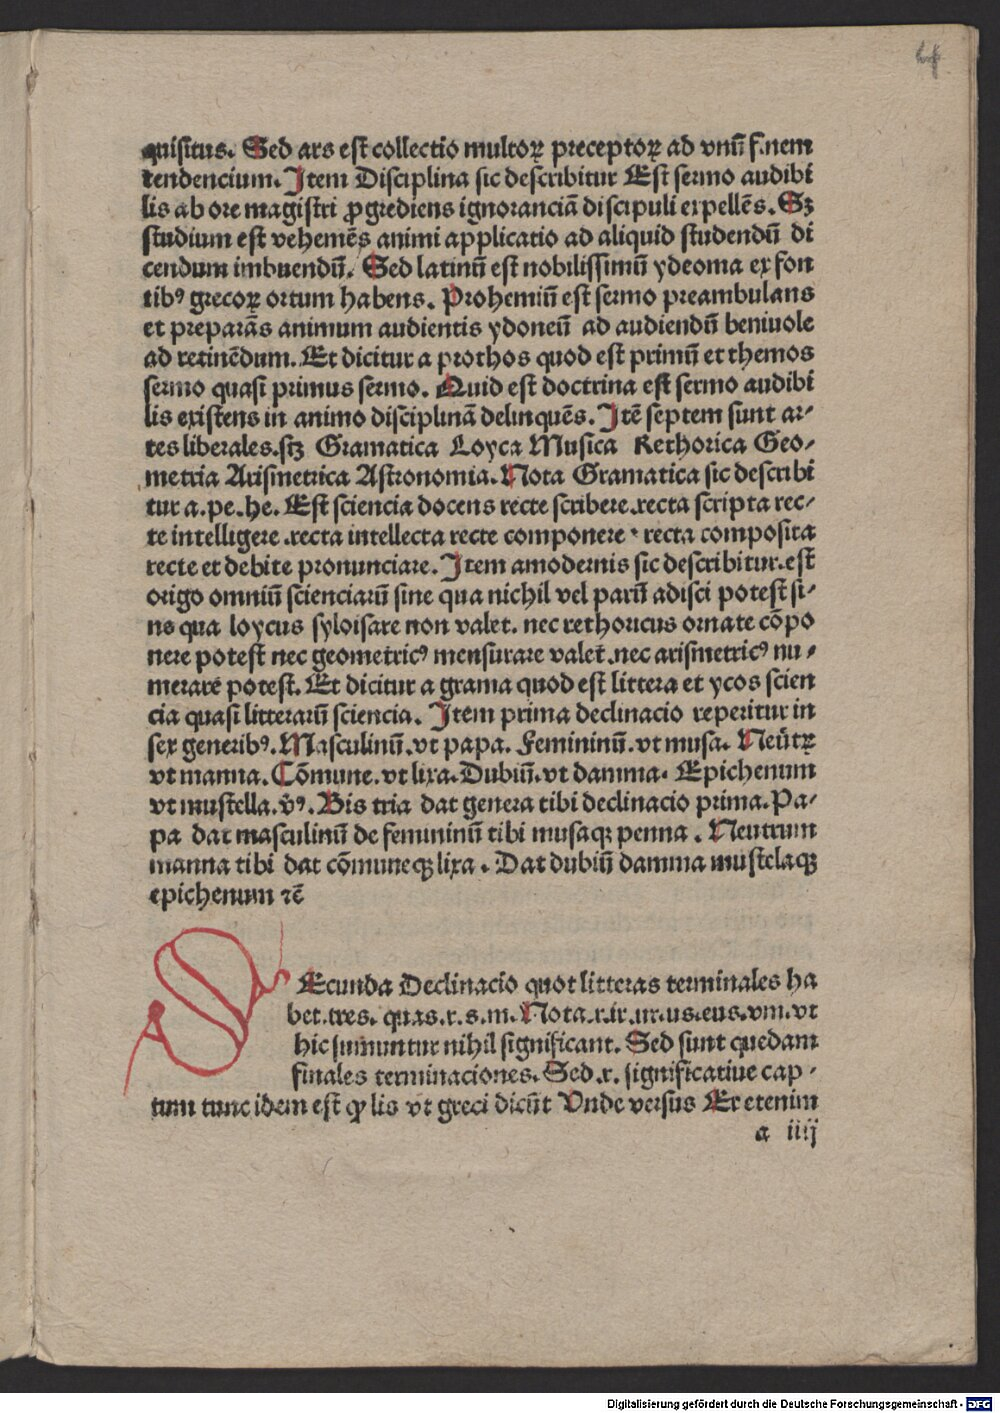 quisitus. Sed ars est collectio multoꝝ preceptoꝝ ad vnū f.nem
tendencium. Item Disciplina sic describitur Est sermo audibi
lis ab ore magistri ꝓgrediens ignoranciā discipuli expellēs. Sꝫ
studium est vehemēs animi applicatio ad aliquid studendū di
cendum imbuendū. Sed latinū est nobilissimū ydeoma ex fon
tibꝰ grecoꝝ ortum habens. Prohemiū est sermo preambulans
et preparās animum audientis ydoneū ad audiendū beniuole
ad retinēdum. Et dicitur a prothos quod est primū et themos
sermo quasi primus sermo. Quid est doctrina est sermo audibi
lis existens in animo disciplinā delinquēs. Itē septem sunt ar-
tes liberales.sꝫ Gramatica Loyca Musica Rethorica Geo-
metria Arismetrica Astronomia. Nota Gramatica sic describi
tur a.pe.he. Est sciencia docens recte scribere.recta scripta rec-
te intelligere .recta intellecta recte componere · recta composita
recte et debite pronunciare. Item amodernis sic describitur.est
origo omniū scienciarū sine qua nichil vel parū adisci potest si-
ne qua loycus syloisare non valet. nec rethoricus ornate cōpo
nere potest nec geometricꝰ mensurare valet .nec arismetricꝰ nu-
merare potest. Et dicitur a grama quod est littera et ycos scien
cia quasi litterarū sciencia. Item prima declinacio reperitur in
sex generibꝰ. Masculinū.vt papa. Femininū.vt musa. Neūtꝝ
vt manna. Cōmune.vt lixa. Dubiū.vt damma. Epichenum
vt mustella. v̄ꝰ. Bis tria dat genera tibi declinacio prima. Pa-
pa dat masculinū de femininū tibi musaqꝫ penna . Neutrum
manna tibi dat cōmuneqꝫ lixa . Dat dubiū damma mustelaqꝫ
epichenum ⁊ē
SEcunda Declinacio quot litteras terminales ha
bet.tres. quas.r.s.m. Nota.r.ir.ur.us.eus.vm.vt
hic sumuntur nihil significant. Sed sunt quedam
finales terminaciones. Sed.r. significatiue cap-
tum tunc idem est ꝙ lis vt greci dicūt Vnde versus Er etenim
a iiij
Digitalisierung gefördert durch die Deutsche Forschungsgemeinschaft - DFG